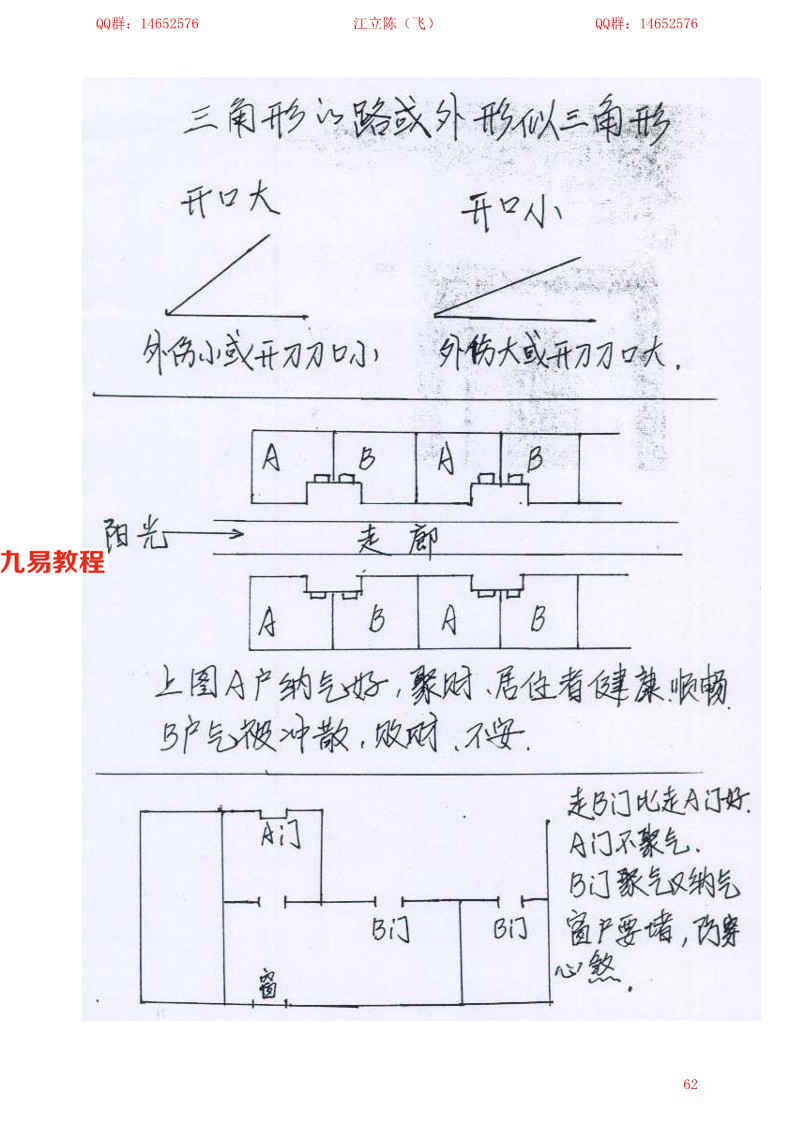 QQ群：14652576 江立陈（飞） QQ群：14652576
三角形的路或外形似三角形
开口大 开口小
外伤小或开刀刀口小 外伤大或开刀刀口大.
A B A B
阳光 走廊
九易教程
A B A B
上图A户纳气好,聚财、居住者健康.顺畅.
B户气被冲散,败财、不安.
走B门比走A门好.
A门
A门不聚气.
B门聚气又纳气
B门 B门
窗户要堵,防穿
心煞.
窗
62